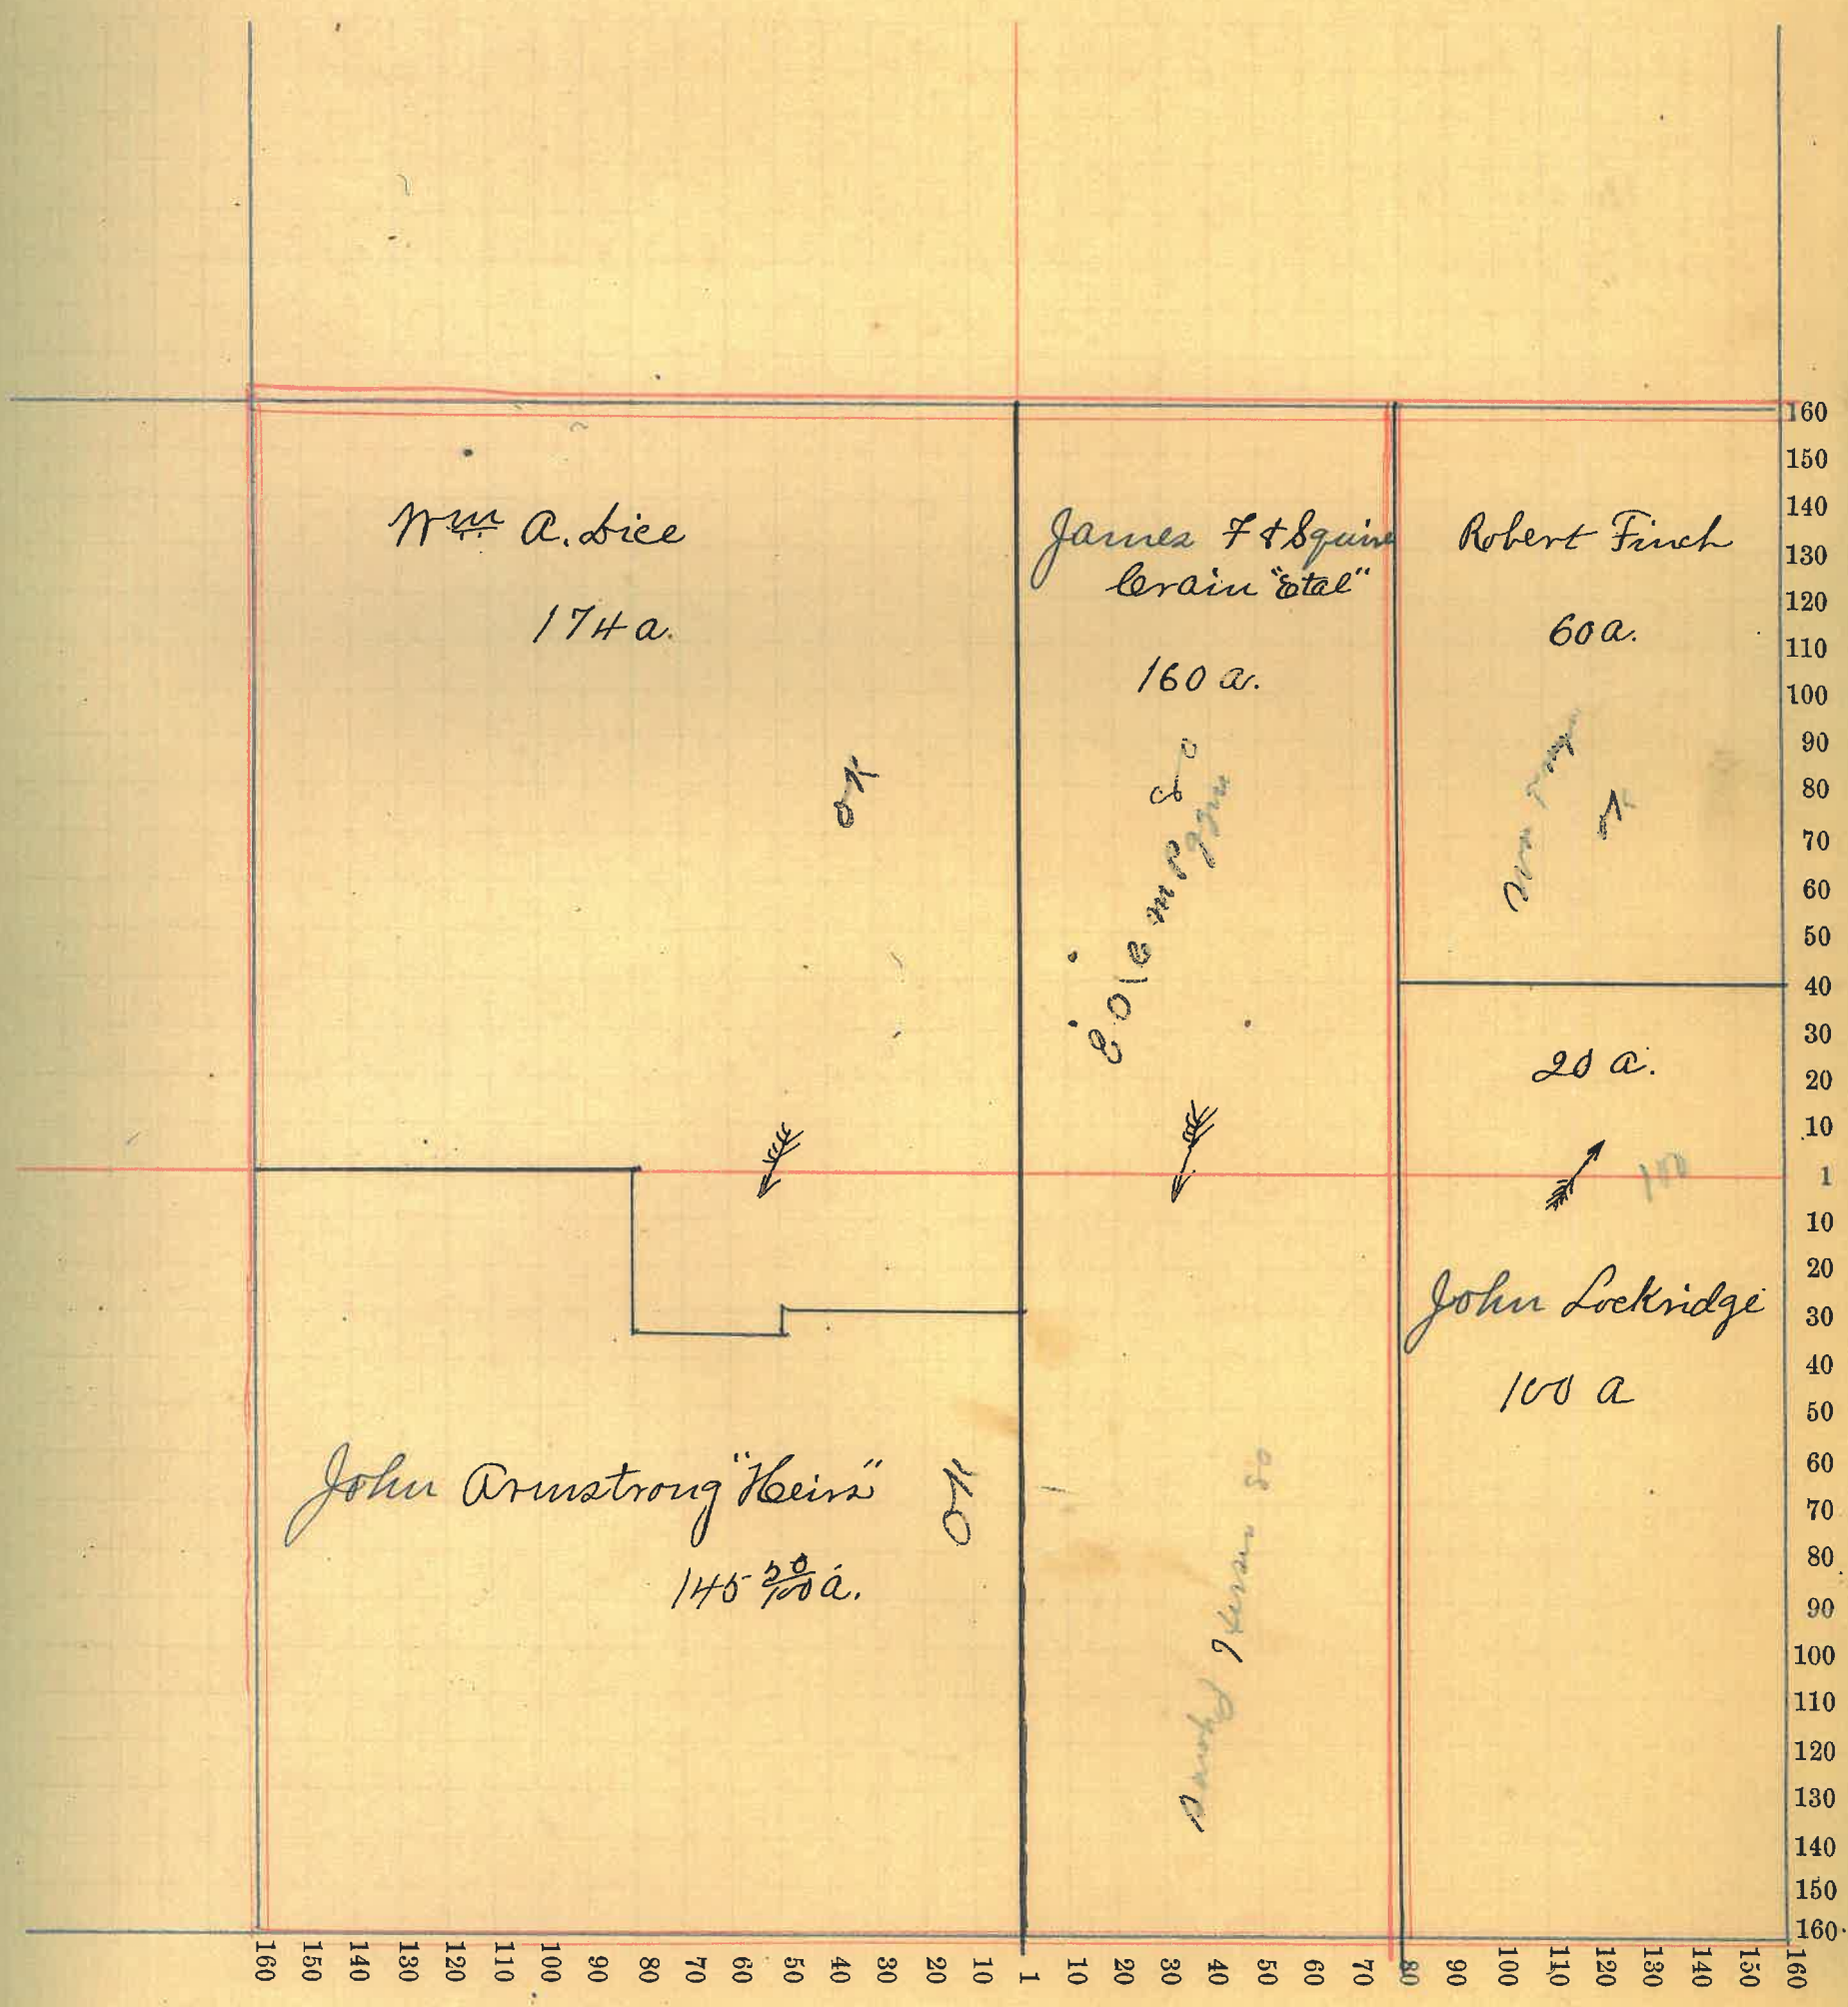 Wm A. Dice
174 a.
OK
James F & Squire
Crain "Etal"
160 a.
80
Robert Finch
60 a.
OK
20 a.
100
John Lockridge
100 a
John Armstrong "Heirs"
145 50/100 a.
OK
80
160
150
140
130
120
110
100
90
80
70
60
50
40
30
20
10
1
10
20
30
40
50
60
70
80
90
100
110
120
130
140
150
160
160 150 140 130 120 110 100 90 80 70 60 50 40 30 20 10 1 10 20 30 40 50 60 70 80 90 100 110 120 130 140 150 160